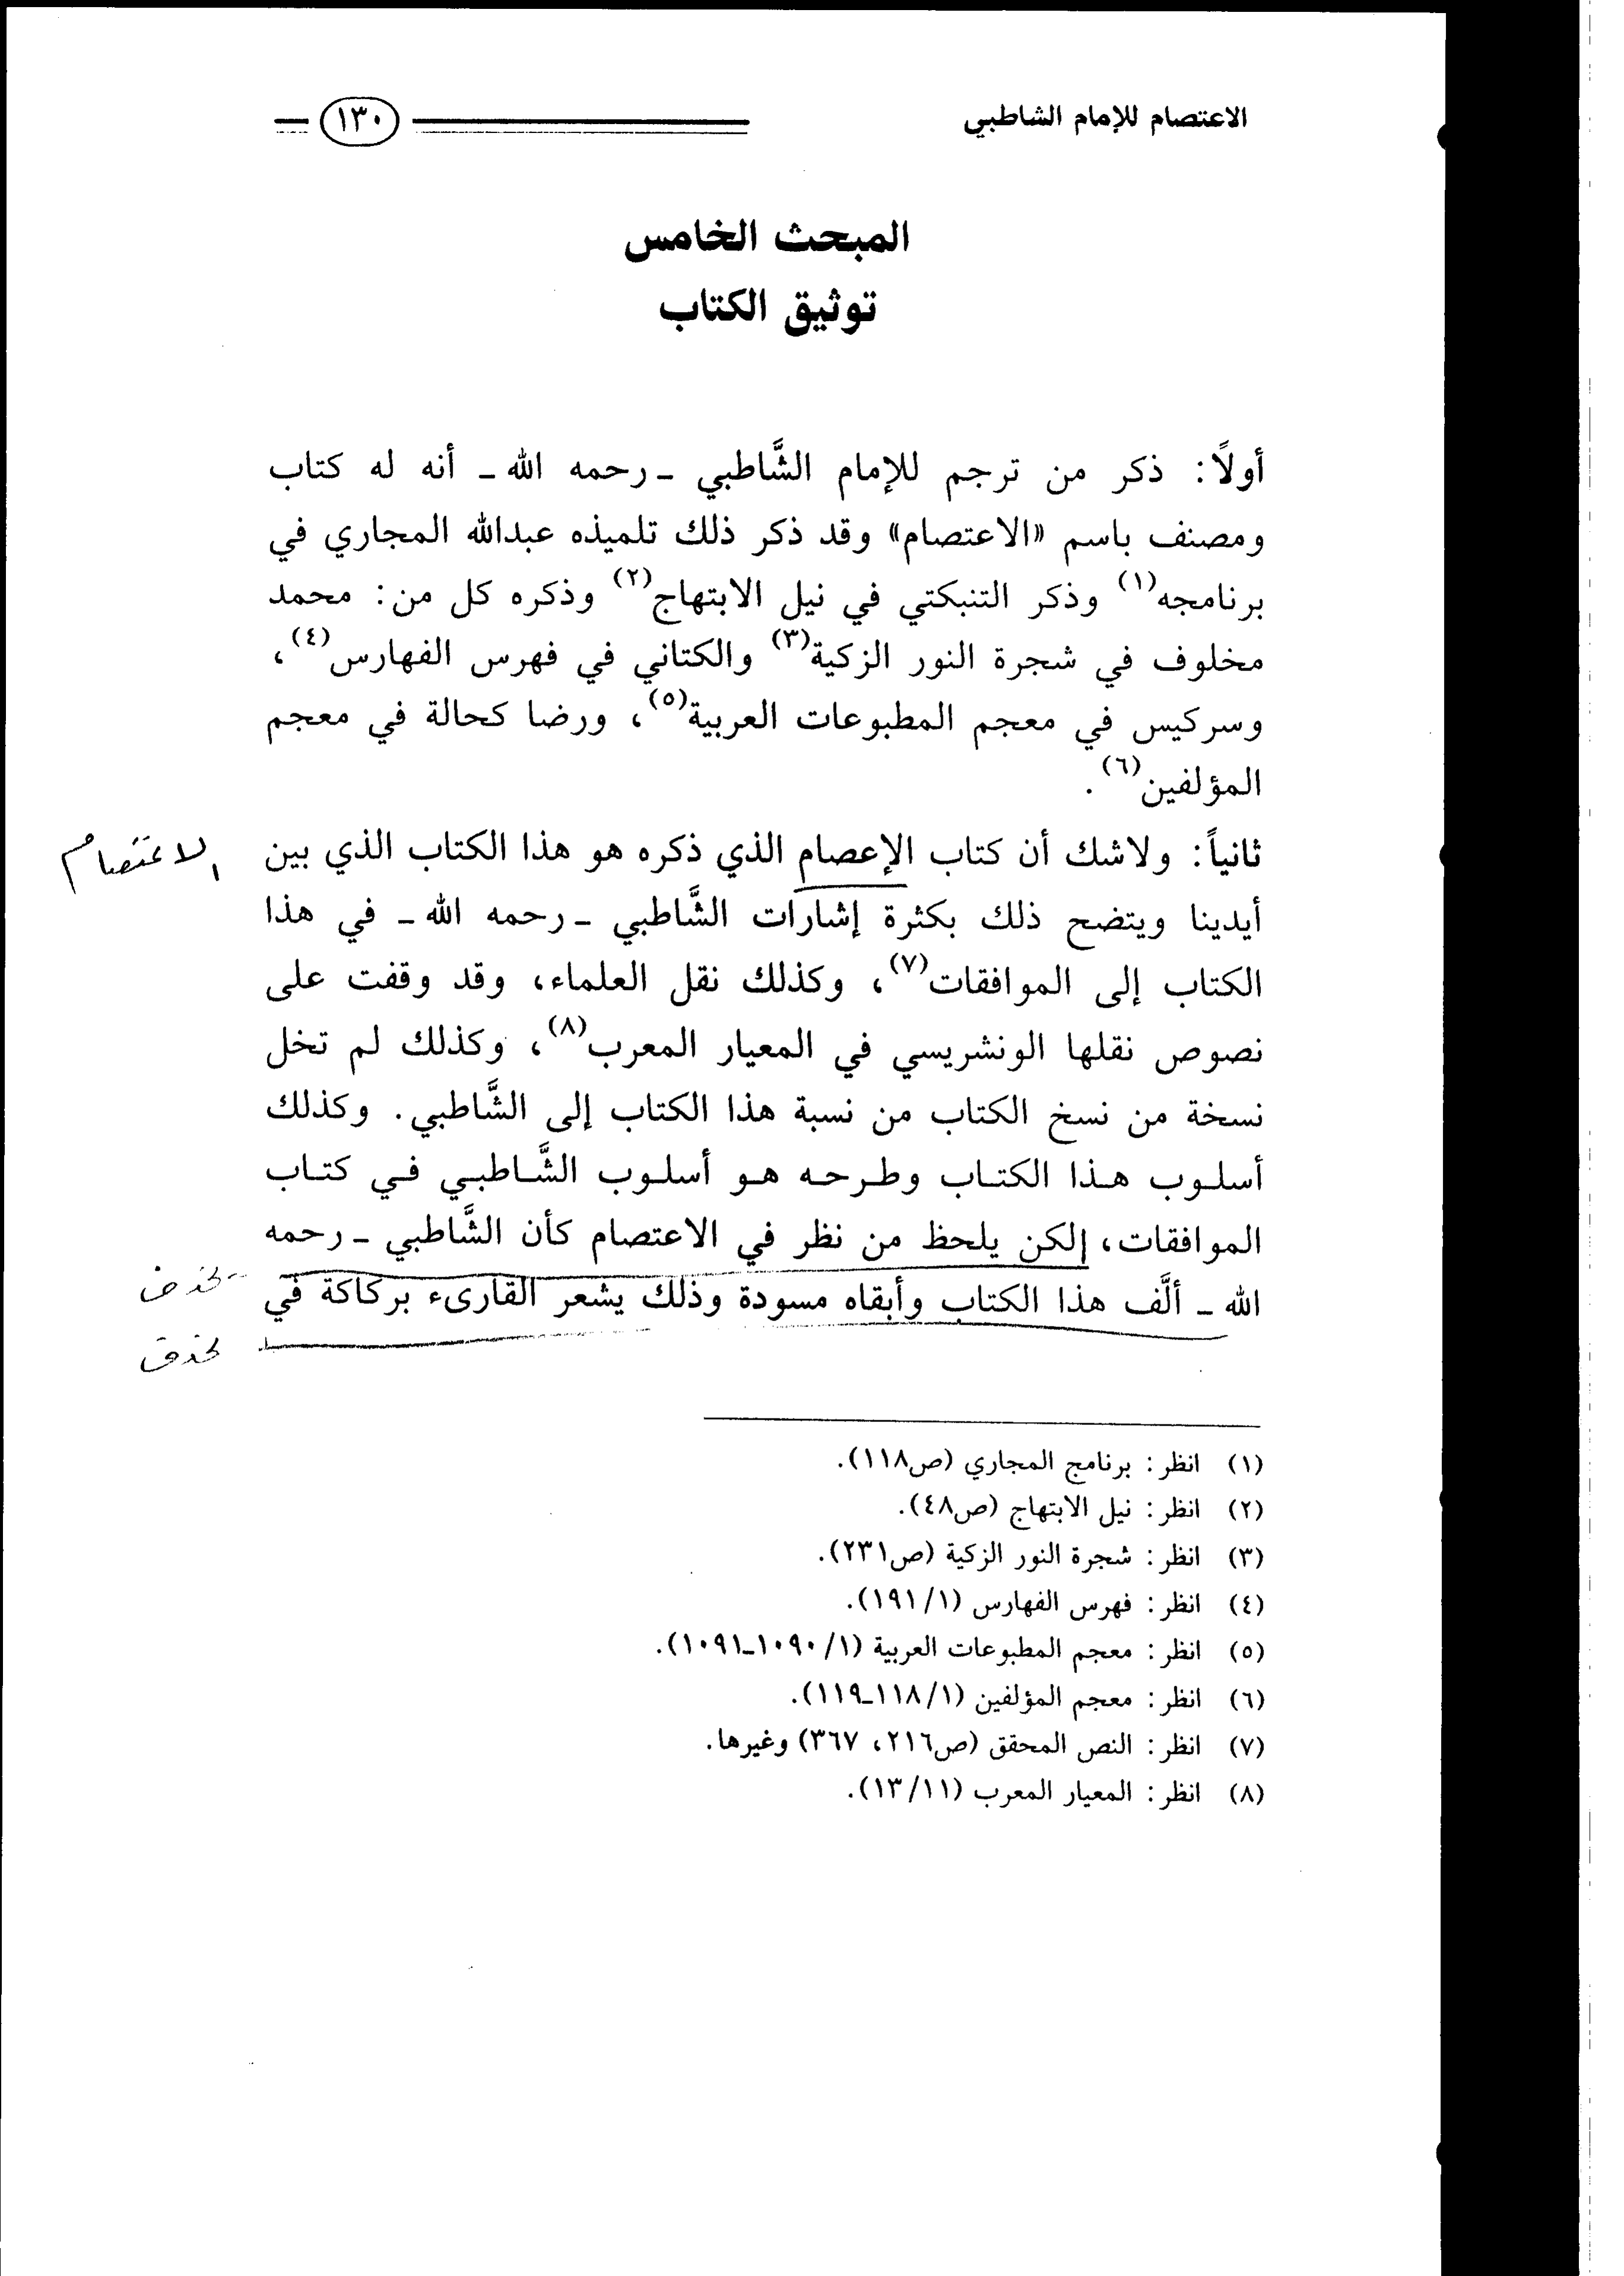 الاعتصام للإمام الشاطبي
١٣٠
المبحث الخامس
توثيق الكتاب
أولاً: ذكر من ترجم للإمام الشَّاطبي ـ رحمه الله ـ أنه له كتاب
ومصنف باسم «الاعتصام» وقد ذكر ذلك تلميذه عبدالله المجاري في
برنامجه(١) وذكر التنبكتي في نيل الابتهاج(٢) وذكره كل من: محمد
مخلوف في شجرة النور الزكية(٣) والكتاني في فهرس الفهارس(٤)،
وسركيس في معجم المطبوعات العربية(٥)، ورضا كحالة في معجم
المؤلفين(٦).
ثانياً: ولاشك أن كتاب الإعصام الذي ذكره هو هذا الكتاب الذي بين
الاعتصام
أيدينا ويتضح ذلك بكثرة إشارات الشَّاطبي ـ رحمه الله ـ في هذا
الكتاب إلى الموافقات(٧)، وكذلك نقل العلماء، وقد وقفت على
نصوص نقلها الونشريسي في المعيار المعرب(٨)، وكذلك لم تخل
نسخة من نسخ الكتاب من نسبة هذا الكتاب إلى الشَّاطبي. وكذلك
أسلوب هذا الكتاب وطرحه هو أسلوب الشَّاطبي في كتاب
الموافقات، لكن يلحظ من نظر في الاعتصام كأن الشَّاطبي ـ رحمه
تحذف
الله ـ ألَّف هذا الكتاب وأبقاه مسودة وذلك يشعر القارىء بركاكة في
تحذف
(١) انظر: برنامج المجاري (ص١١٨).
(٢) انظر: نيل الابتهاج (ص٤٨).
(٣) انظر: شجرة النور الزكية (ص٢٣١).
(٤) انظر: فهرس الفهارس (١/١٩١).
(٥) انظر: معجم المطبوعات العربية (١/١٠٩٠ـ١٠٩١).
(٦) انظر: معجم المؤلفين (١/١١٨ـ١١٩).
(٧) انظر: النص المحقق (ص٢١٦، ٣٦٧) وغيرها.
(٨) انظر: المعيار المعرب (١٣/١١).